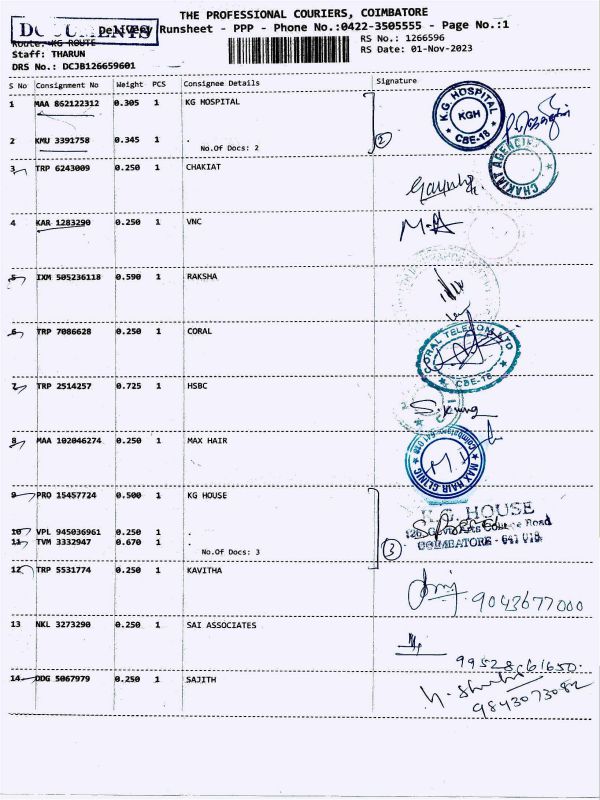 THE PROFESSIONAL COURIERS, COIMBATORE
DOCUMENTS
Delivery Runsheet - PPP - Phone No.:0422-3505555 - Page No.:1
Route: KG ROUTE
RS No.: 1266596
Staff: THARUN
RS Date: 01-Nov-2023
DRS No.: DCJB126659601
S No Consignment No Weight PCS Consignee Details Signature
1 MAA 862122312 0.305 1 KG HOSPITAL
K.G. HOSPITAL
KGH
CBE-18
2 KMU 3391758 0.345 1 .
No.Of Docs: 2
2
3 TRP 6243009 0.250 1 CHAKIAT
CHAKIAT AGENCIES
4 KAR 1283290 0.250 1 VNC
5 IXM 505236118 0.590 1 RAKSHA
6 TRP 7086628 0.250 1 CORAL
CORAL TELECOM
CBE-18
7 TRP 2514257 0.725 1 HSBC
8 MAA 102046274 0.250 1 MAX HAIR
MAX HAIR CLINIC
Coimbatore-641 018
9 PRO 15457724 0.500 1 KG HOUSE
K.G. HOUSE
Govt Arts College Road
COIMBATORE - 641 018
10 VPL 945036961 0.250 1 .
11 TVM 3332947 0.670 1 .
No.Of Docs: 3
3
12 TRP 5531774 0.250 1 KAVITHA
9043677000
13 NKL 3273290 0.250 1 SAI ASSOCIATES
9952861650
14 DDG 5067979 0.250 1 SAJITH
9843073082